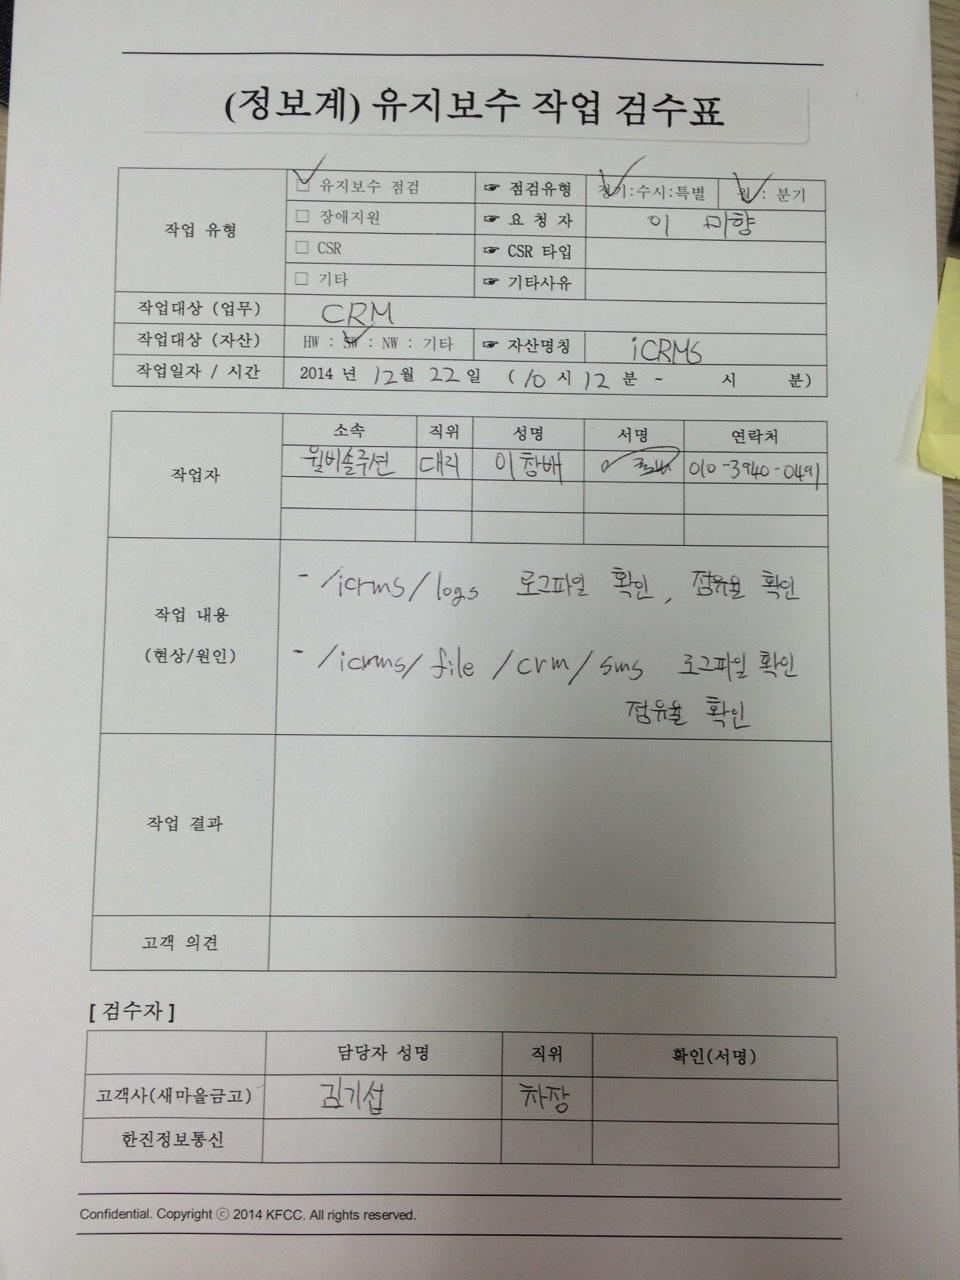 (정보계) 유지보수 작업 검수표
작업 유형
□ 유지보수 점검 ☞ 점검유형 정기:수시:특별 월 : 분기
□ 장애지원 ☞ 요 청 자 이 미향
□ CSR ☞ CSR 타입
□ 기타 ☞ 기타사유
작업대상 (업무) CRM
작업대상 (자산) HW : SW : NW : 기타 ☞ 자산명칭 iCRMS
작업일자 / 시간 2014 년 12월 22일 (10 시 12 분 ~ 시 분)
작업자
소속 직위 성명 서명 연락처
윌비솔루션 대리 이창배 010-3940-0491
작업 내용
(현상/원인)
- /icrms/logs 로그파일 확인, 점유율 확인
- /icrms/file /crm/sms 로그파일 확인
점유율 확인
작업 결과
고객 의견
[ 검수자 ]
담당자 성명 직위 확인(서명)
고객사(새마을금고) 김기섭 차장
한진정보통신
Confidential. Copyright ⓒ 2014 KFCC. All rights reserved.